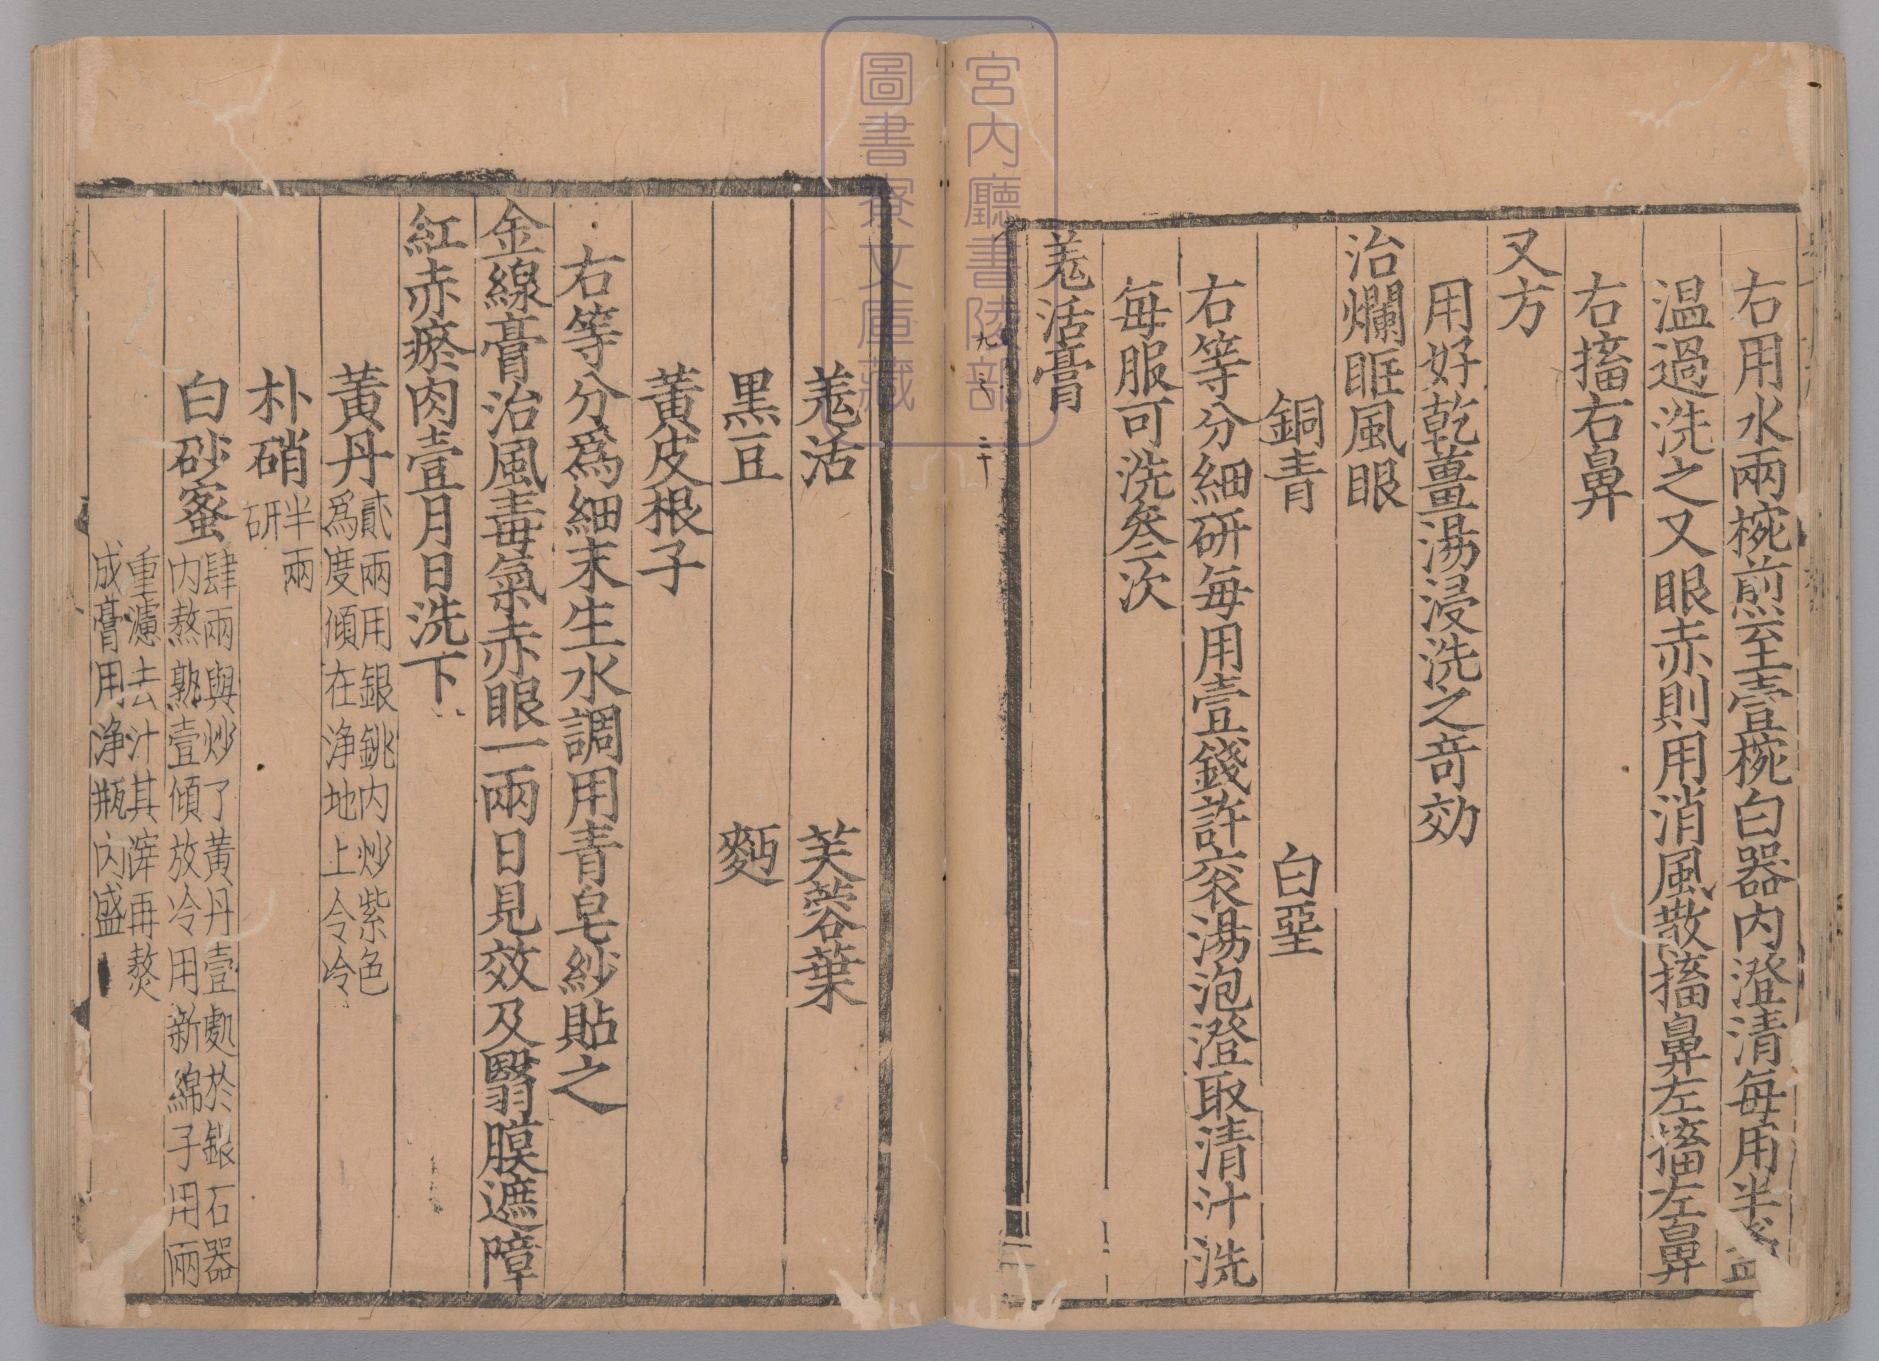 右用水兩椀煎至壹椀白器內澄清每用半盞
温過洗之又眼赤則用消風散搐鼻左搐左鼻
右搐右鼻
又方
用好乾薑湯浸洗之奇効
治爛眶風眼
銅青 白堊
右等分細研每用壹錢許衮湯泡澄取清汁洗
每服可洗叄二次
羗活膏
羗活 芙蓉葉
黒豆 麪
黃皮根子
右等分爲細末生水調用青皂紗貼之
金線膏治風毒氣赤眼一兩日見效及翳膜遮障
紅赤瘀肉壹月日洗下
黃丹貳兩用銀銚内炒紫色
爲度傾在浄地上令冷
朴硝半兩
研
白砂蜜肆兩與炒了黃丹壹處於銀石器
内熬熟壹傾放冷用新綿子用兩
重濾去汁其滓再熬
成膏用浄瓶内盛
宮内廳書陵部
圖書寮文庫藏